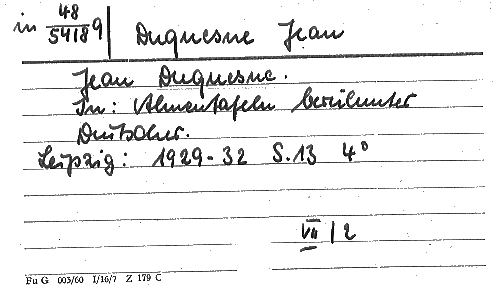 in 48/54189 Duquesne Jean
Jean Duquesne.
In: Ahnentafeln berühmter
Deutscher.
Leipzig: 1929-32 S.13 4°
VII/2
Fu G 003/60 I/16/7 Z 179 C